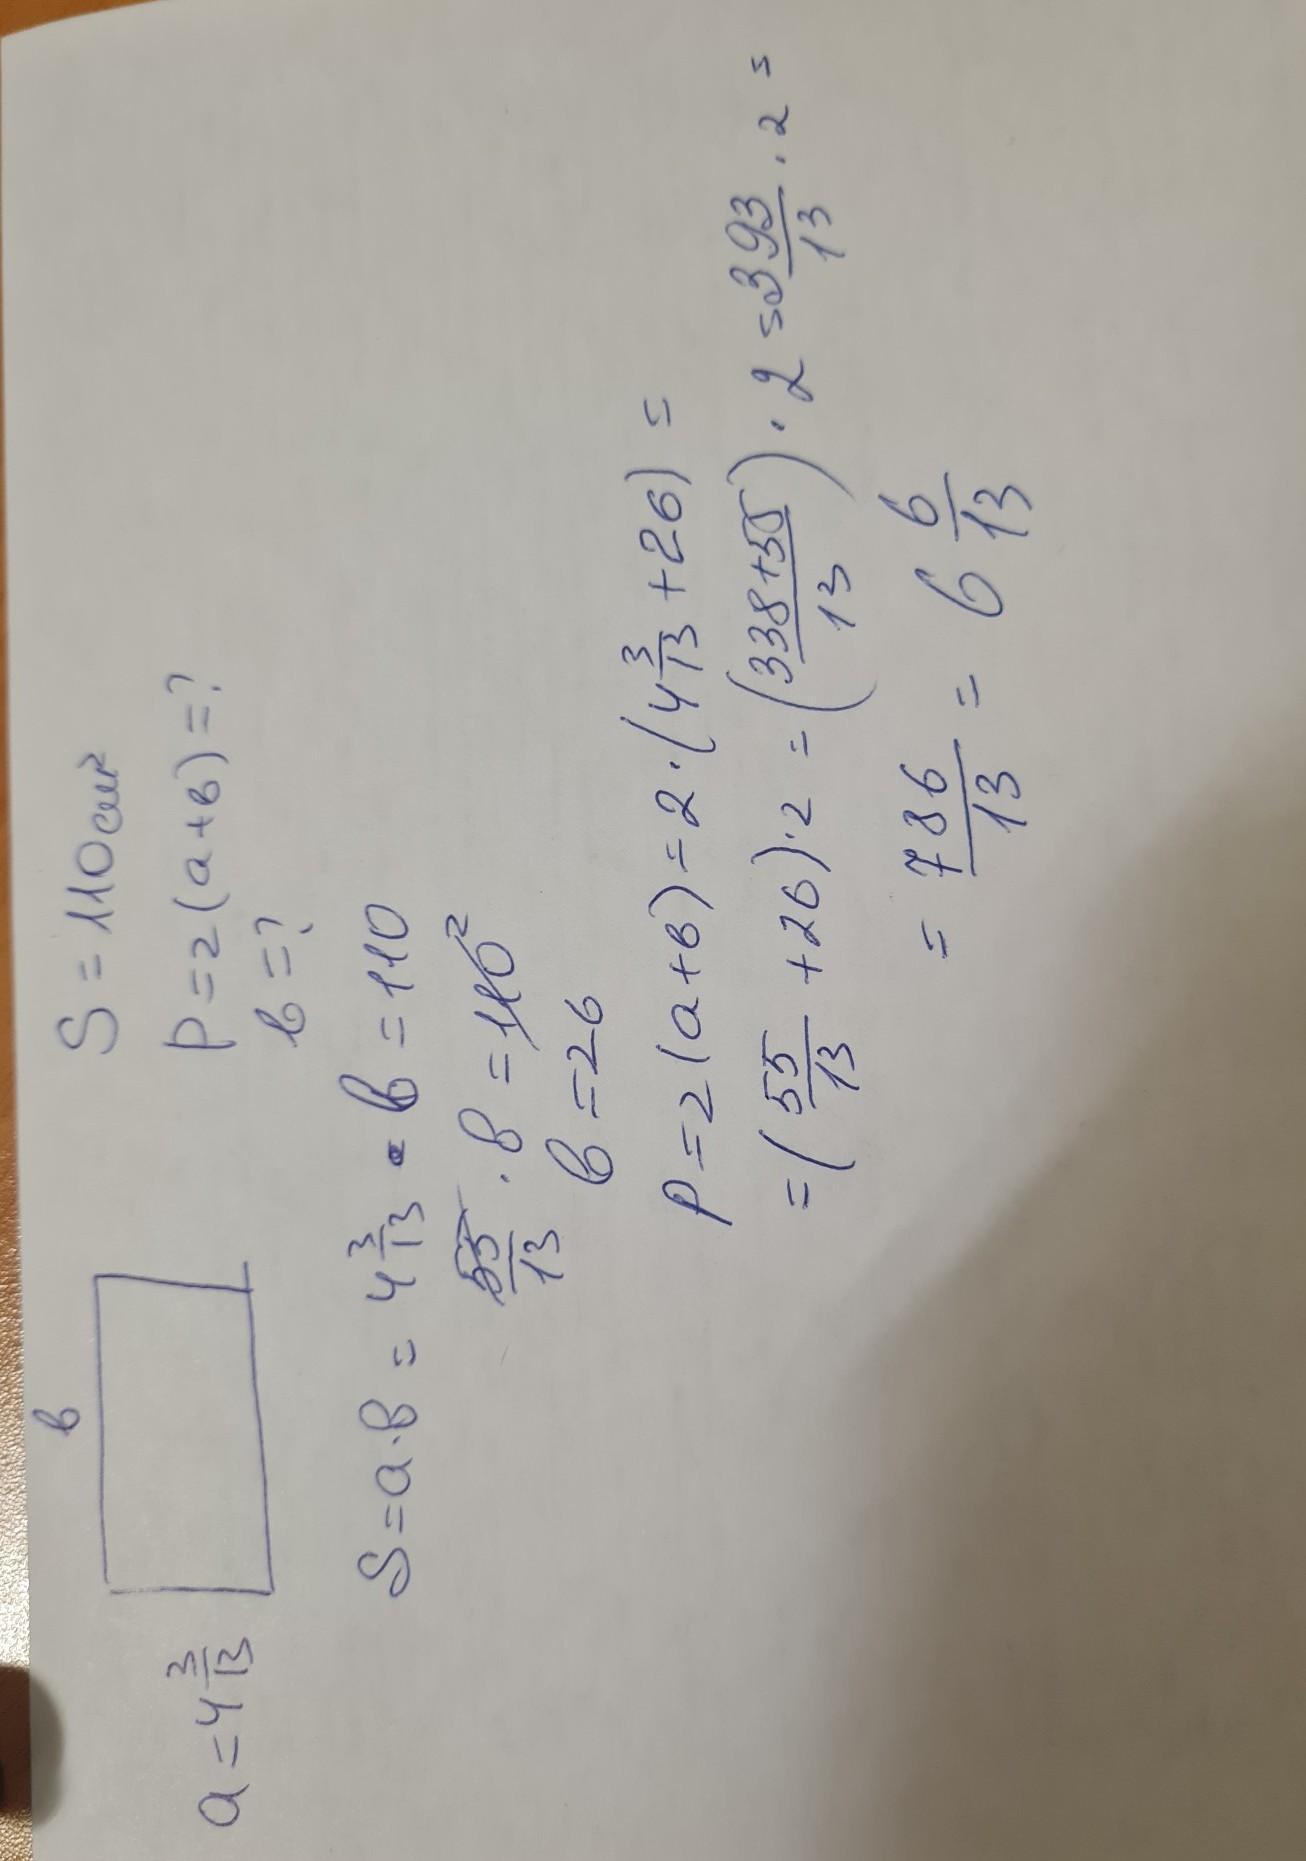 в
a = 4 3/13
S = 110 см²
P = 2(a+в) = ?
в = ?
S = a · в = 4 3/13 · в = 110
55/13 · в = 110 2
в = 26
P = 2(a+в) = 2 · (4 3/13 + 26) =
= (55/13 + 26) · 2 = (338+55/13) · 2 = 393/13 · 2 =
= 786/13 = 6 6/13